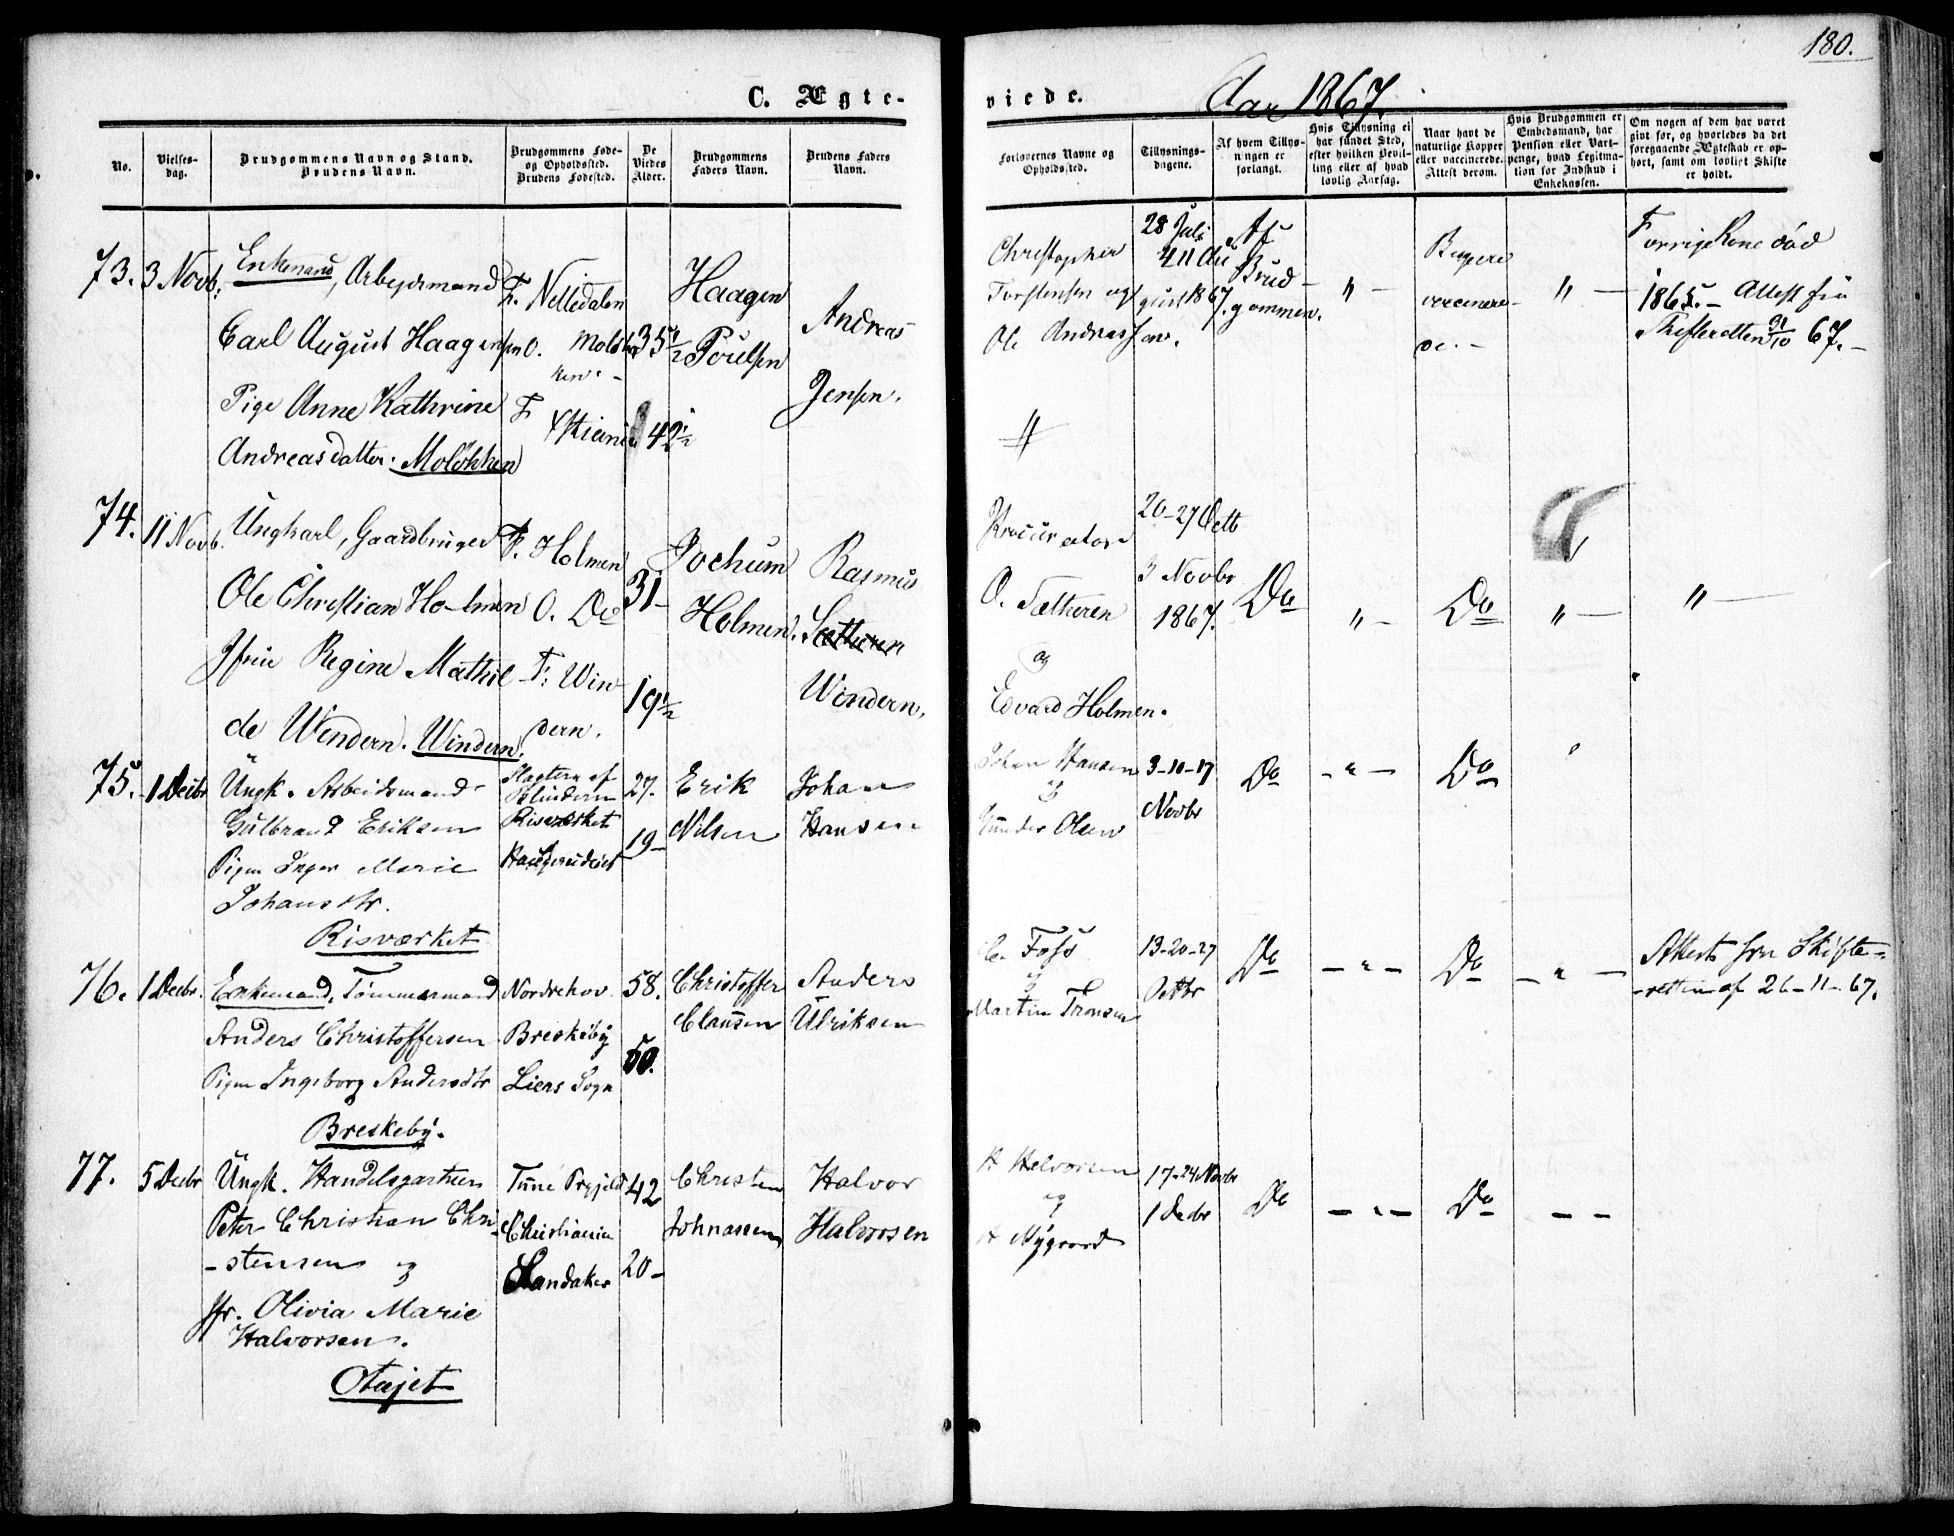 180.
C. Ægte-
viede.
Aar 1867.
No.
Vielses-
dag.
Brudgommens Navn og Stand.
Brudens Navn.
Brudgommens Føde-
og Opholdssted.
Brudens Fødested.
De
Viedes
Alder.
Brudgommens
Faders Navn.
Brudens Faders
Navn.
Forlovernes Navne og
Opholdssted.
Tillysnings-
dagene.
Af hvem Tillys-
ningen er
forlangt.
Hvis Tillysning ei
har fundet Sted,
efter hvilken Bevil-
ling eller af hvad
lovlig Aarsag.
Naar havt de
naturlige Kopper
eller vaccinerede.
Attest derom.
Hvis Brudgommen er
Embedsmand, har
Pension eller Vart-
penge, hvad Legitima-
tion for Indskud i
Enkekassen.
Om nogen af dem har været
givt før, og hvorledes da det
foregaaende Ægteskab er op-
hørt, samt om lovligt Skifte
er holdt.
73. 3 Novb:
Enkemand, Arbejdsmand
Carl August Haagensen
Pige Anne Kathrine
Andreasdatter. Moløkken
F. Nelledalen
O. Moløk
ken -
F
Xstiania
35½
42½
Haagen
Poulsen
Andreas
Jensen.
Christopher
Torstensen og
Ole Andreassen.
28 Juli
4 11 Au
gust 1867.
Af
Brud-
gommen.
" -
Begge
vaccinere-
de. -
" -
Forrige Kone død
1865. - Attest fra
Skifteretten 31/10 67. -
74. 11 Novb.
Ungkarl, Gaardbruger
Ole Christian Holmen
Jfru Regine Mathil-
de Windern. Windern.
F. Holmen
O. Do
F: Win
dern.
31-
19½
Jochum
Holmen.
Rasmus
Sætheren
Windern.
Procurator
O. Sætheren
og
Edvard Holmen.
20-27 Octb
3 Novbr
1867.
Do
" -
Do
" -
" -
75. 1 Decbr
Ungk. Arbeidsmand
Gulbrand Eriksen
Pigen Inger Marie
Johansdtr.
Risværket
Slagtern af
Blindern
Risværket
Haugerudeiet
27.
19-
Erik
Nilsen
Johan
Hansen
Johan Hansen
og
Gunder Olsen
3-10-17
Novbr
Do
- " -
Do
76. 1 Decbr.
Enkemand, Tømmermand
Anders Christoffersen
Pigen Ingeborg Andersdtr
Breskeby.
Nordrehov
Breskeby
Liers Sogn
58.
50.
Christoffer
Clausen
Anders
Ulriksen
Foss
og
Martin Tronsen
13-20-27
Octbr
Do
- " -
Do
- " -
Attest fra Skifte-
-retten af 26-11-67.
77. 5 Decbr
Ungk. Handelsgartner
Peter Christian Chri-
-stensen og
Jfr. Olivia Marie
Halvorsen.
Tune Prgjeld
Christiania
Sandaker
42
20-
Christen
Johnassen
Halvor
Halvorsen
H Halvorsen
og
Nygaard
17-24 Novbr
1 Decbr
Do
- " -
Do
- -